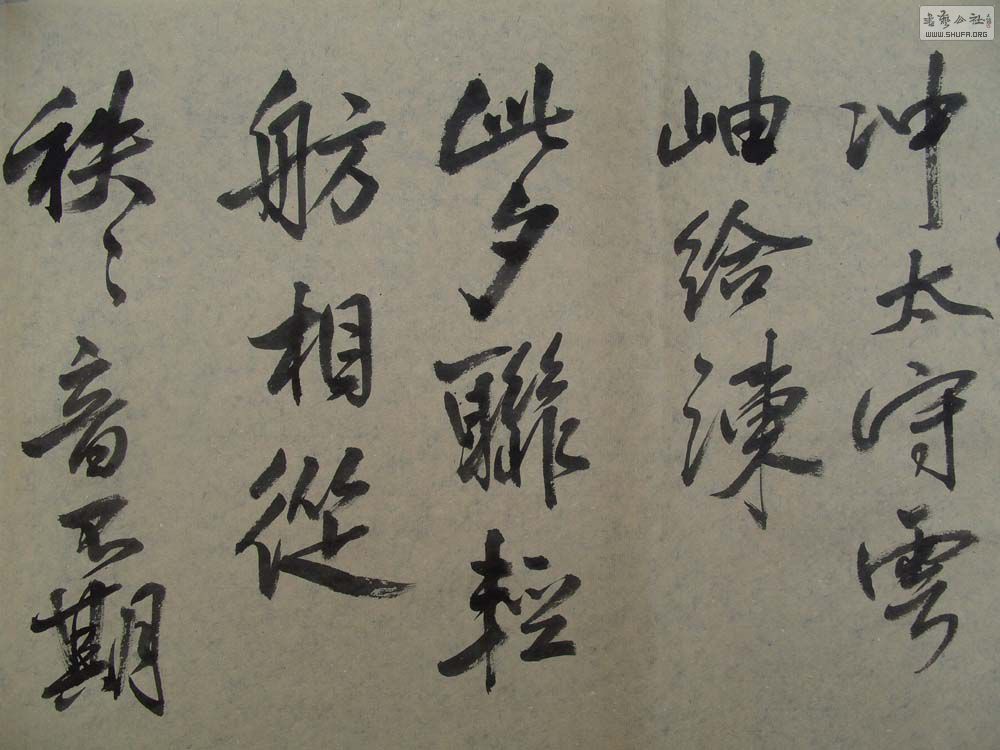 冲太守雲
岫給諫
此夕聯輕
舫相從
秩々音不期
書藝公社
WWW.SHUFA.ORG